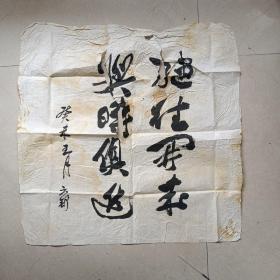 继往开来
与时俱进
癸未五月